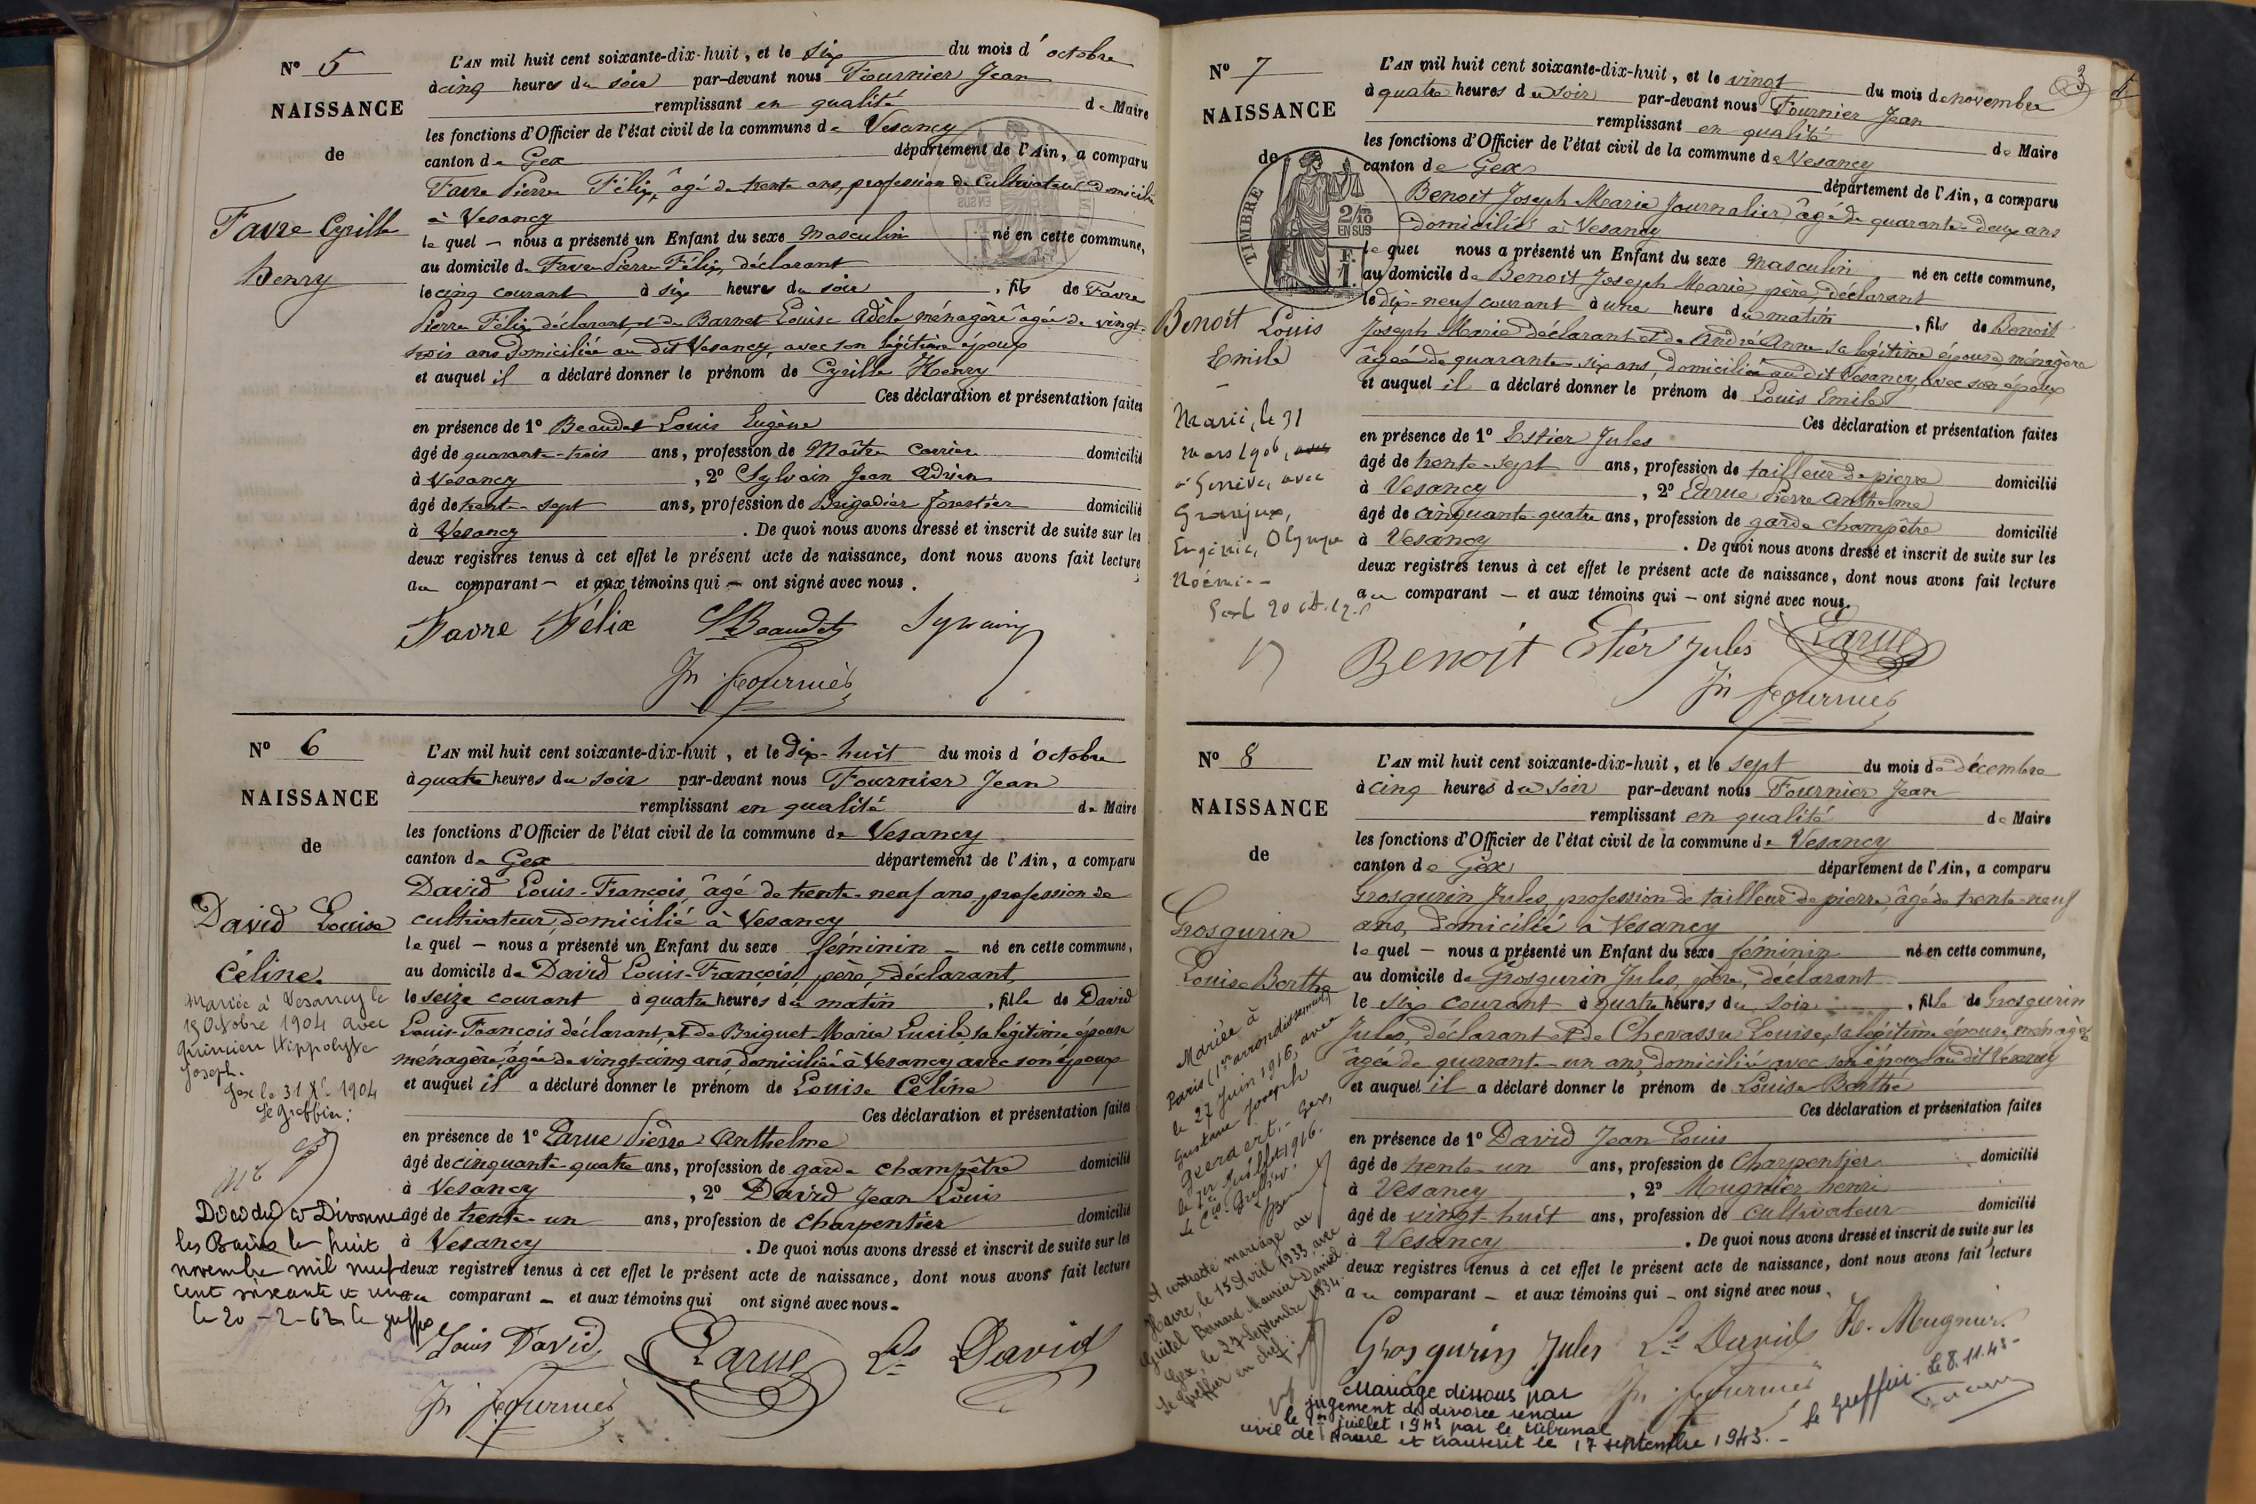 N° 5
NAISSANCE
de
Favre Cyrille
Henry
L'AN mil huit cent soixante-dix-huit, et le six du mois d'octobre
à cinq heures du soir par-devant nous Fournier Jean
remplissant en qualité de Maire
les fonctions d'Officier de l'état civil de la commune de Vesancy
canton de Gex département de l'Ain, a comparu
Favre Pierre Félix, âgé de trente ans, profession de Cultivateur domicilié
à Vesancy
le quel — nous a présenté un Enfant du sexe masculin né en cette commune,
au domicile de Favre Pierre Félix, déclarant
le cinq courant à six heures du soir, fils de Favre
Pierre Félix déclarant, et de Barnet Louise Adèle ménagère âgée de vingt-
trois ans domiciliée au dit Vesancy, avec son légitime époux
et auquel il a déclaré donner le prénom de Cyrille Henry
Ces déclaration et présentation faites
en présence de 1° Beaudet Louis Eugène
âgé de quarante-trois ans, profession de Maître carrier domicilié
à Vesancy, 2° Sylvain Jean Adrien
âgé de trente-sept ans, profession de Brigadier forestier domicilié
à Vesancy. De quoi nous avons dressé et inscrit de suite sur les
deux registres tenus à cet effet le présent acte de naissance, dont nous avons fait lecture
au comparant — et aux témoins qui — ont signé avec nous.
Favre Félix Beaudet Sylvain
Jn Fournier
N° 6
NAISSANCE
de
David Louise
Céline.
Mariée à Vesancy le
15 Octobre 1904 avec
Hippolyte
Joseph.
Gex le 31 Xbre 1904
Le Greffier:
Décédée à Divonne
les Bains le huit
novembre mil neuf
cent soixante et un
le 20-2-62 le greffier
L'AN mil huit cent soixante-dix-huit, et le Dix-huit du mois d'octobre
à quatre heures du soir par-devant nous Fournier Jean
remplissant en qualité de Maire
les fonctions d'Officier de l'état civil de la commune de Vesancy
canton de Gex département de l'Ain, a comparu
David Louis-François, âgé de trente-neuf ans, profession de
cultivateur, domicilié à Vesancy
le quel — nous a présenté un Enfant du sexe féminin — né en cette commune,
au domicile de David Louis-François, père, déclarant,
le seize courant à quatre heures du matin, fille de David
Louis-François déclarant, et de Briguet Marie Lucile, sa légitime épouse
ménagère, âgée de vingt-cinq ans, domiciliée à Vesancy, avec son époux
et auquel il a déclaré donner le prénom de Louise Céline
Ces déclaration et présentation faites
en présence de 1° Larue Pierre Anthelme
âgé de cinquante-quatre ans, profession de garde champêtre domicilié
à Vesancy, 2° David Jean Louis
âgé de trente-un ans, profession de charpentier domicilié
à Vesancy. De quoi nous avons dressé et inscrit de suite sur les
deux registres tenus à cet effet le présent acte de naissance, dont nous avons fait lecture
au comparant — et aux témoins qui ont signé avec nous.
Louis David Larue Ls David
Jn Fournier
3
N° 7
NAISSANCE
de
TIMBRE
2/10 EN SUS
F. 1.
Benoit Louis
Emile
Marié, le 31
mars 1906,
à Genève, avec
Granjux,
Eugénie, Olympe
Noémie
L'AN mil huit cent soixante-dix-huit, et le vingt du mois de novembre
à quatre heures du soir par-devant nous Fournier Jean
remplissant en qualité de Maire
les fonctions d'Officier de l'état civil de la commune de Vesancy
canton de Gex département de l'Ain, a comparu
Benoit Joseph Marie Journalier âgé de quarante-deux ans
Domicilié à Vesancy
le quel nous a présenté un Enfant du sexe masculin né en cette commune,
au domicile de Benoit Joseph Marie, père, déclarant
le dix-neuf courant à une heure du matin, fils de Benoit
Joseph Marie déclarant et de André Anne sa légitime épouse, ménagère
âgée de quarante-six ans, domiciliée au dit Vesancy, avec son époux
et auquel il a déclaré donner le prénom de Louis Emile
Ces déclaration et présentation faites
en présence de 1° Estier Jules
âgé de trente-sept ans, profession de tailleur de pierre domicilié
à Vesancy, 2° Larue Pierre Anthelme
âgé de cinquante-quatre ans, profession de garde champêtre domicilié
à Vesancy. De quoi nous avons dressé et inscrit de suite sur les
deux registres tenus à cet effet le présent acte de naissance, dont nous avons fait lecture
au comparant — et aux témoins qui — ont signé avec nous.
Benoit Estier Jules Larue
Jn Fournier
N° 8
NAISSANCE
de
Grosgurin
Louise Berthe
Mariée à
Paris (1er arrondissement)
le 27 Juin 1916, avec
Gustave Joseph
Gex,
le 1er Juillet 1916.
Le Cis Greffier
A contracté mariage au
Havre, le 15 Avril 1933, avec
Bernard Maurice Daniel.
Gex, le 27 Septembre 1934.
Le Greffier en chef:
L'AN mil huit cent soixante-dix-huit, et le sept du mois de décembre
à cinq heures du soir par-devant nous Fournier Jean
remplissant en qualité de Maire
les fonctions d'Officier de l'état civil de la commune de Vesancy
canton de Gex département de l'Ain, a comparu
Grosgurin Jules, profession de tailleur de pierre, âgé de trente-neuf
ans, domicilié à Vesancy
le quel — nous a présenté un Enfant du sexe féminin né en cette commune,
au domicile de Grosgurin Jules, père, déclarant
le six courant à quatre heures du soir, fille de Grosgurin
Jules, déclarant et de Chevassu Louise, sa légitime épouse, ménagère
âgée de quarante-un ans, domiciliée avec son époux au dit Vesancy
et auquel il a déclaré donner le prénom de Louise Berthe
Ces déclaration et présentation faites
en présence de 1° David Jean Louis
âgé de trente-un ans, profession de Charpentier domicilié
à Vesancy, 2° Mugnier henri
âgé de vingt-huit ans, profession de cultivateur domicilié
à Vesancy. De quoi nous avons dressé et inscrit de suite sur les
deux registres tenus à cet effet le présent acte de naissance, dont nous avons fait lecture
au comparant — et aux témoins qui — ont signé avec nous.
Grosgurin Jules Ls David H. Mugnier
Jn Fournier
Mariage dissous par
jugement de divorce rendu
le 1er juillet 1943 par le tribunal
civil de Havre et transcrit le 17 septembre 1943.-
Le Greffier. le 8.11.43-